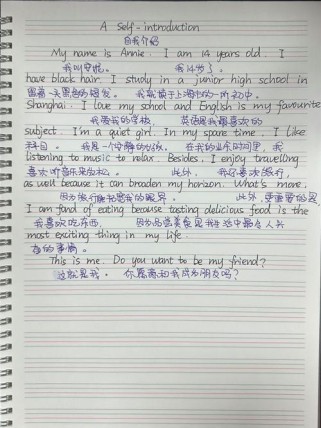 A Self-introduction
自我介绍
My name is Annie. I am 14 years old. I
我叫安妮。 我14岁了。
have black hair. I study in a junior high school in
留着一头黑色的短发。 我就读于上海市的一所初中。
Shanghai. I love my school and English is my favourite
我爱我的学校, 英语是我最喜欢的
subject. I'm a quiet girl. In my spare time, I like
科目。 我是一个安静的女孩。 在我的业余时间里, 我
listening to music to relax. Besides, I enjoy travelling
喜欢听音乐来放松。 此外, 我还喜欢旅行,
as well because it can broaden my horizon. What's more,
因为旅行能拓宽我的眼界。 此外, 更重要的是
I am fond of eating because tasting delicious food is the
我喜欢吃东西, 因为品尝美食是我生活中最令人兴
most exciting thing in my life.
奋的事情。
This is me. Do you want to be my friend?
这就是我。 你愿意和我成为朋友吗?